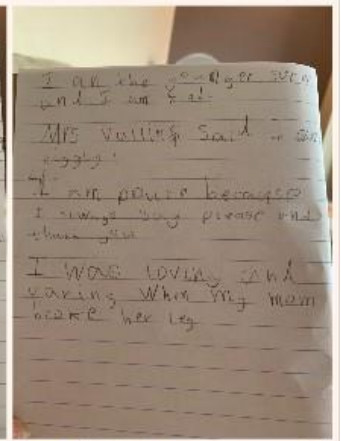 I am the younger
and I am
Mrs said
I am polite because
I always say please and
thank you
I was loving and
caring when my mom
broke her leg